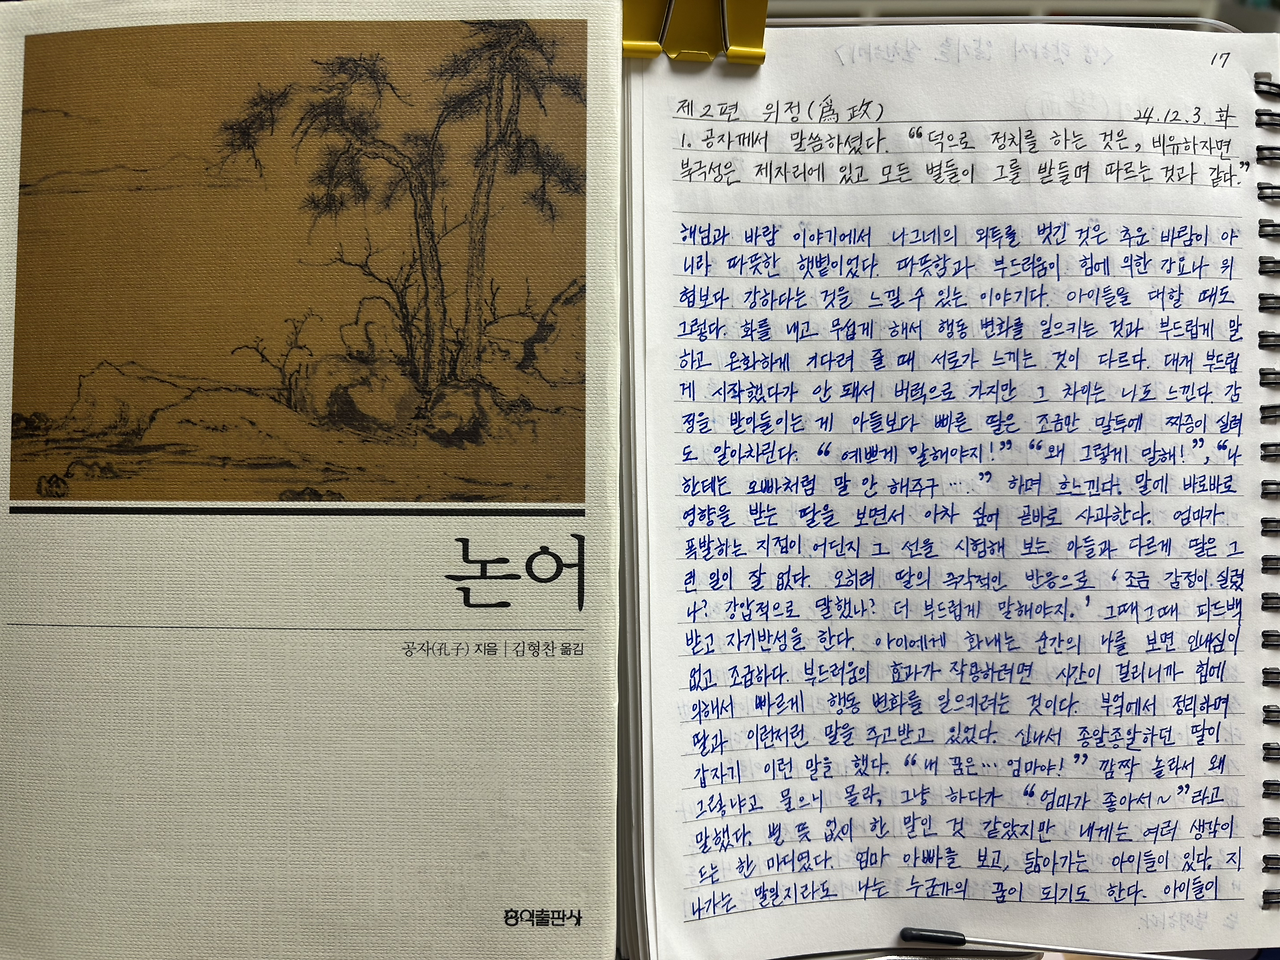 논어
공자(孔子) 지음 | 김형찬 옮김
홍익출판사
17
제2편 위정(爲政) 24.12.3. 화
1. 공자께서 말씀하셨다. “덕으로 정치를 하는 것은, 비유하자면
북극성은 제자리에 있고 모든 별들이 그를 받들며 따르는 것과 같다.”
해님과 바람 이야기에서 나그네의 외투를 벗긴 것은 추운 바람이 아
니라 따뜻한 햇볕이었다. 따뜻함과 부드러움이 힘에 의한 강요나 위
협보다 강하다는 것을 느낄 수 있는 이야기다. 아이들을 대할 때도
그렇다. 화를 내고 무섭게 해서 행동 변화를 일으키는 것과 부드럽게 말
하고 온화하게 기다려 줄 때 서로가 느끼는 것이 다르다. 대개 부드럽
게 시작했다가 안 돼서 버럭으로 가지만 그 차이는 나도 느낀다. 감
정을 받아들이는 게 아들보다 빠른 딸은 조금만 말투에 짜증이 실려
도 알아차린다. “예쁘게 말해야지!” “왜 그렇게 말해!”, “나
한테는 오빠처럼 말 안 해주구….” 하며 흐느낀다. 말에 바로바로
영향을 받는 딸을 보면서 아차 싶어 곧바로 사과한다. 엄마가
폭발하는 지점이 어딘지 그 선을 시험해 보는 아들과 다르게 딸은 그
런 일이 잘 없다. 오히려 딸의 즉각적인 반응으로 ‘조금 감정이 실렸
나? 강압적으로 말했나? 더 부드럽게 말해야지.’ 그때그때 피드백
받고 자기반성을 한다. 아이에게 화내는 순간의 나를 보면 인내심이
없고 조급하다. 부드러움의 효과가 작용하려면 시간이 걸리니까 힘에
의해서 빠르게 행동 변화를 일으키려는 것이다. 부엌에서 정리하며
딸과 이런저런 말을 주고받고 있었다. 신나서 종알종알하던 딸이
갑자기 이런 말을 했다. “내 꿈은… 엄마야!” 깜짝 놀라서 왜
그렇냐고 물으니 몰라, 그냥 하다가 “엄마가 좋아서~”라고
말했다. 별 뜻 없이 한 말인 것 같았지만 내게는 여러 생각이
드는 한 마디였다. 엄마 아빠를 보고, 닮아가는 아이들이 있다. 지
나가는 말일지라도 나는 누군가의 꿈이 되기도 한다. 아이들이